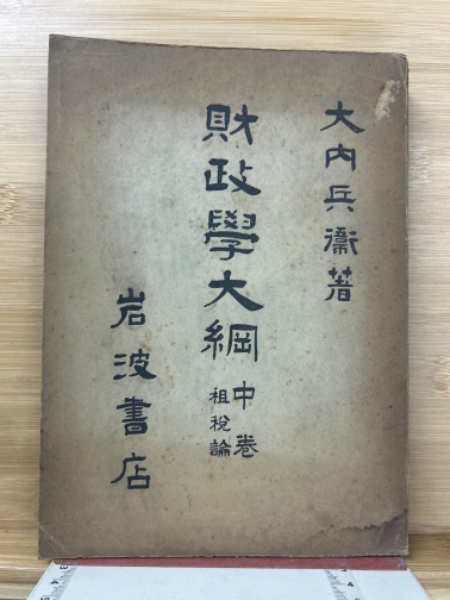 大内兵衞著
財政學大綱
中卷
租税論
岩波書店